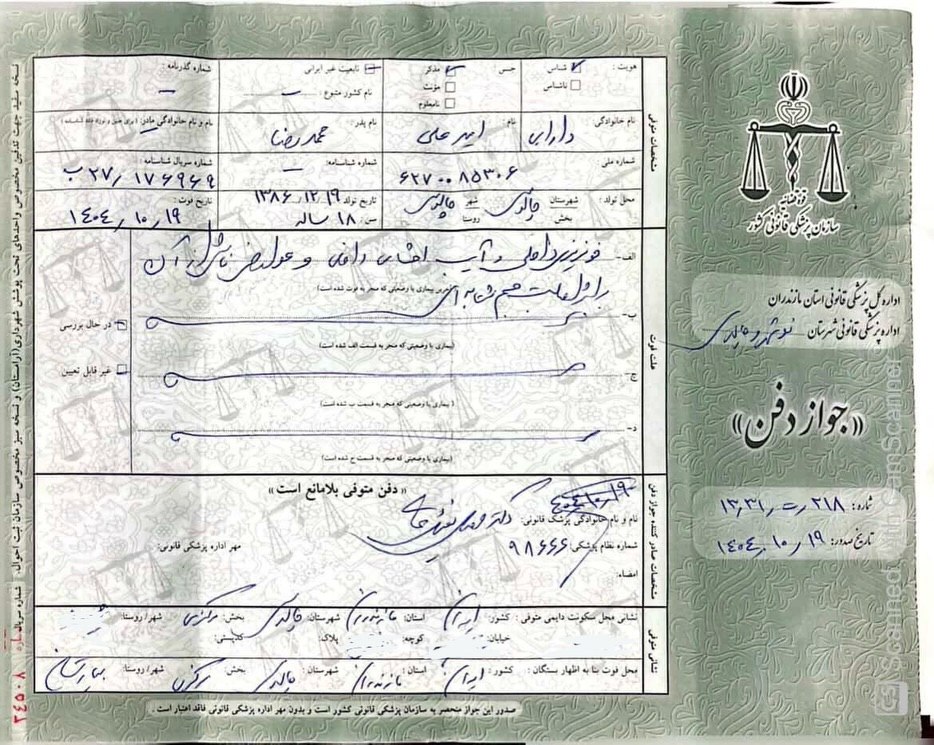 سازمان پزشکی قانونی کشور
اداره کل پزشکی قانونی استان مازندران
اداره پزشکی قانونی شهرستان نوشهر و چالوس
«جواز دفن»
شماره: ۲۱۸ر ت ر۱۳٫۳۱
تاریخ صدور: ۱۴۰۴٫۱۰٫۱۹
مشخصات متوفی
هویت: شناس ناشناس
جنس: مذکر مونث نامعلوم
تابعیت غیر ایرانی
نام کشور متبوع:
شماره گذرنامه:
نام خانوادگی دارابی
نام: امیرعلی
نام پدر: محمدرضا
نام و نام خانوادگی مادر:
شماره ملی ۶۲۷۰۰۸۵۳۰۶
شماره شناسنامه:
شماره سریال شناسنامه: ب ۲۷٫۱۷۶۹۶۹
محل تولد: شهرستان چالوس شهر چالوس
بخش روستا
تاریخ تولد ۱۳۸۶٫۱۲٫۱۹
سن: ۱۸ ساله
تاریخ فوت: ۱۴۰۴٫۱۰٫۱۹
علت فوت
الف- خونریزی داخلی و آسیب احشای داخلی و عوارض ناشی از آن
(آخرین بیماری یا وضعیتی که منجر به فوت شده است)
ب-
(بیماری یا وضعیتی که منجر به قسمت الف شده است)
ج-
(بیماری یا وضعیتی که منجر به قسمت ب شده است)
د-
(بیماری یا وضعیتی که منجر به قسمت ج شده است)
در حال بررسی
غیر قابل تعیین
مشخصات صادر کننده جواز دفن
«دفن متوفی بلامانع است»
۱۴۰۴٫۱۰٫۱۹
نام و نام خانوادگی پزشک قانونی: دکتر
شماره نظام پزشکی: ۹۸۶۶۶
مهر اداره پزشکی قانونی:
امضاء:
نشانی متوفی
نشانی محل سکونت دایمی متوفی: کشور: ایران استان: مازندران شهرستان: چالوس بخش: مرکزی شهر/روستا:
خیابان: کوچه: پلاک: کدپستی:
محل فوت بنا به اظهار بستگان: کشور: ایران استان: مازندران شهرستان: چالوس بخش: مرکزی شهر/روستا: بیمارستان
صدور این جواز منحصر به سازمان پزشکی قانونی کشور است و بدون مهر اداره پزشکی قانونی فاقد اعتبار است.
نسخه سفید جهت تدفین مخصوص واحدهای تحت پوشش شهرداری(آرامستان) و نسخه سبز مخصوص سازمان ثبت احوال.
شماره سریال
۲۴۵۰۸
Scanned with CamScanner
CS